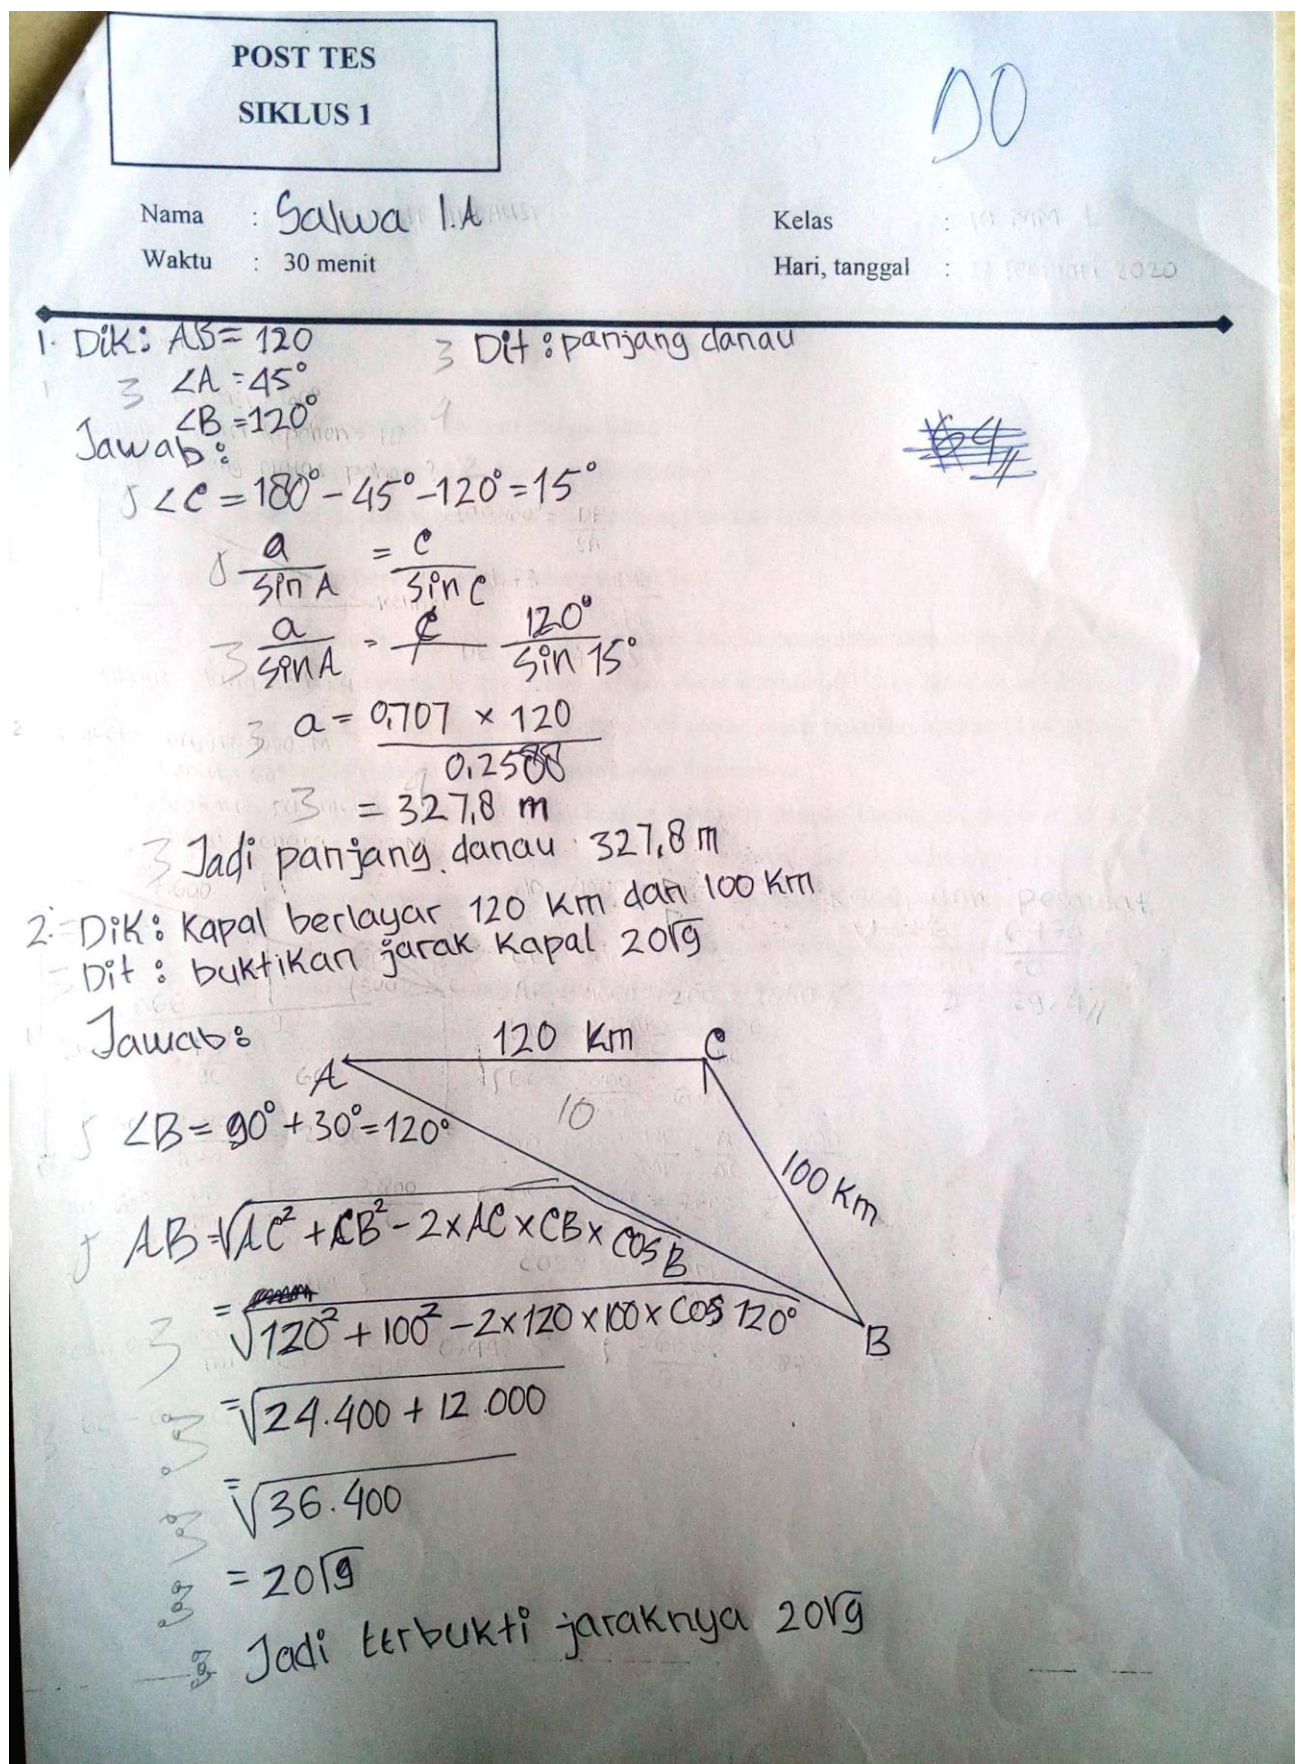 POST TES
SIKLUS 1
Nama : Salwa I.A
Kelas :
Waktu : 30 menit
Hari, tanggal : 2020
1. Dik: AB = 120
3 Dit : panjang danau
3 ∠A = 45°
∠B = 120°
Jawab:
5 ∠C = 180° - 45° - 120° = 15°
5 a/sin A = c/sin C
3 a/sin A = 120°/sin 15°
3 a = 0,707 × 120/0,2588
3 = 327,8 m
3 Jadi panjang danau 327,8 m
2. Dik: Kapal berlayar 120 km dan 100 km
Dit : buktikan jarak kapal 20√9
Jawab:
120 km
A
C
5 ∠B = 90° + 30° = 120°
10
100 km
5 AB = √AC² + CB² - 2 × AC × CB × cos B
3 = √120² + 100² - 2 × 120 × 100 × cos 120°
B
3 = √24.400 + 12.000
3 = √36.400
3 = 20√9
3 Jadi terbukti jaraknya 20√9